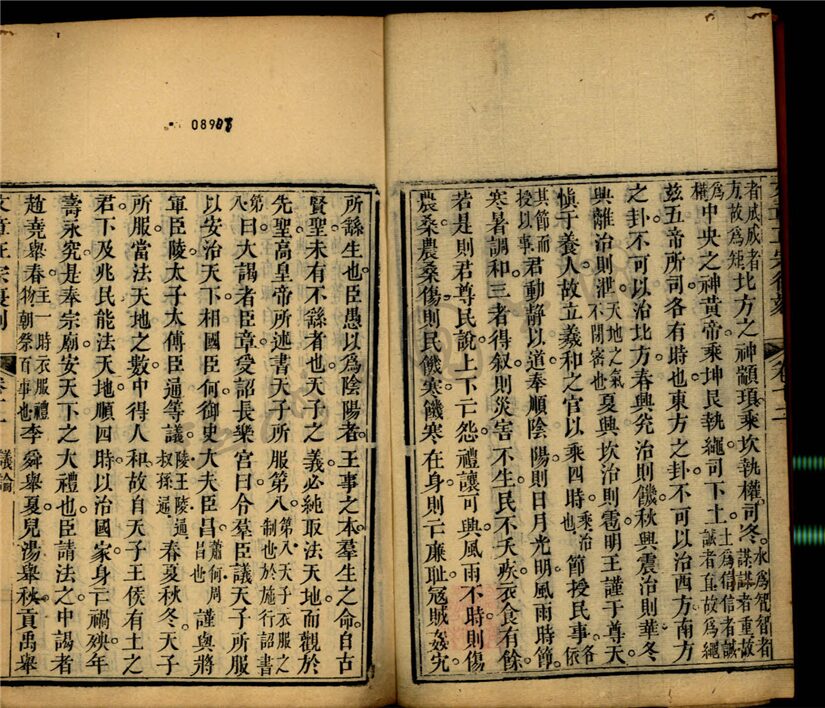 者成成者方故爲矩北方之神顓頊乘坎執權司冬水爲智智者謀謀者重故
爲權中央之神黃帝乘坤艮執繩司下土土爲信信者誠誠者直故爲繩
茲五帝所司各有時也東方之卦不可以治西方南方
之卦不可以治北方春興兌治則饑秋興震治則華冬
興離治則泄天地之氣不閉密也夏興坎治則雹明王謹于尊天
愼于養人故立羲和之官以乘四時乘治也節授民事各依
其節而授以事君動靜以道奉順陰陽則日月光明風雨時節
寒暑調和三者得叙則災害不生民不夭疾衣食有餘
若是則君尊民說上下亡怨禮讓可興風雨不時則傷
農桑農桑傷則民饑寒饑寒在身則亡廉耻宼賊姦宄
0898
所繇生也臣愚以爲陰陽者王事之本羣生之命自古
賢聖未有不繇者也天子之義必純取法天地而觀於
先聖高皇帝所述書天子所服第八第八天子衣服之制也於施行詔書
第八曰大謁者臣章受詔長樂宮曰令羣臣議天子所服
以安治天下相國臣何御史大夫臣昌蕭何周昌也謹與將
軍臣陵太子太傅臣通等議陵王陵通叔孫通春夏秋冬天子
所服當法天地之數中得人和故自天子王侯有土之
君下及兆民能法天地順四時以治國家身亡禍殃年
壽永究是奉宗廟安天下之大禮也臣請法之中謁者
趙堯舉春主一時衣服禮物朝祭百事也李舜舉夏兒湯舉秋貢禹舉